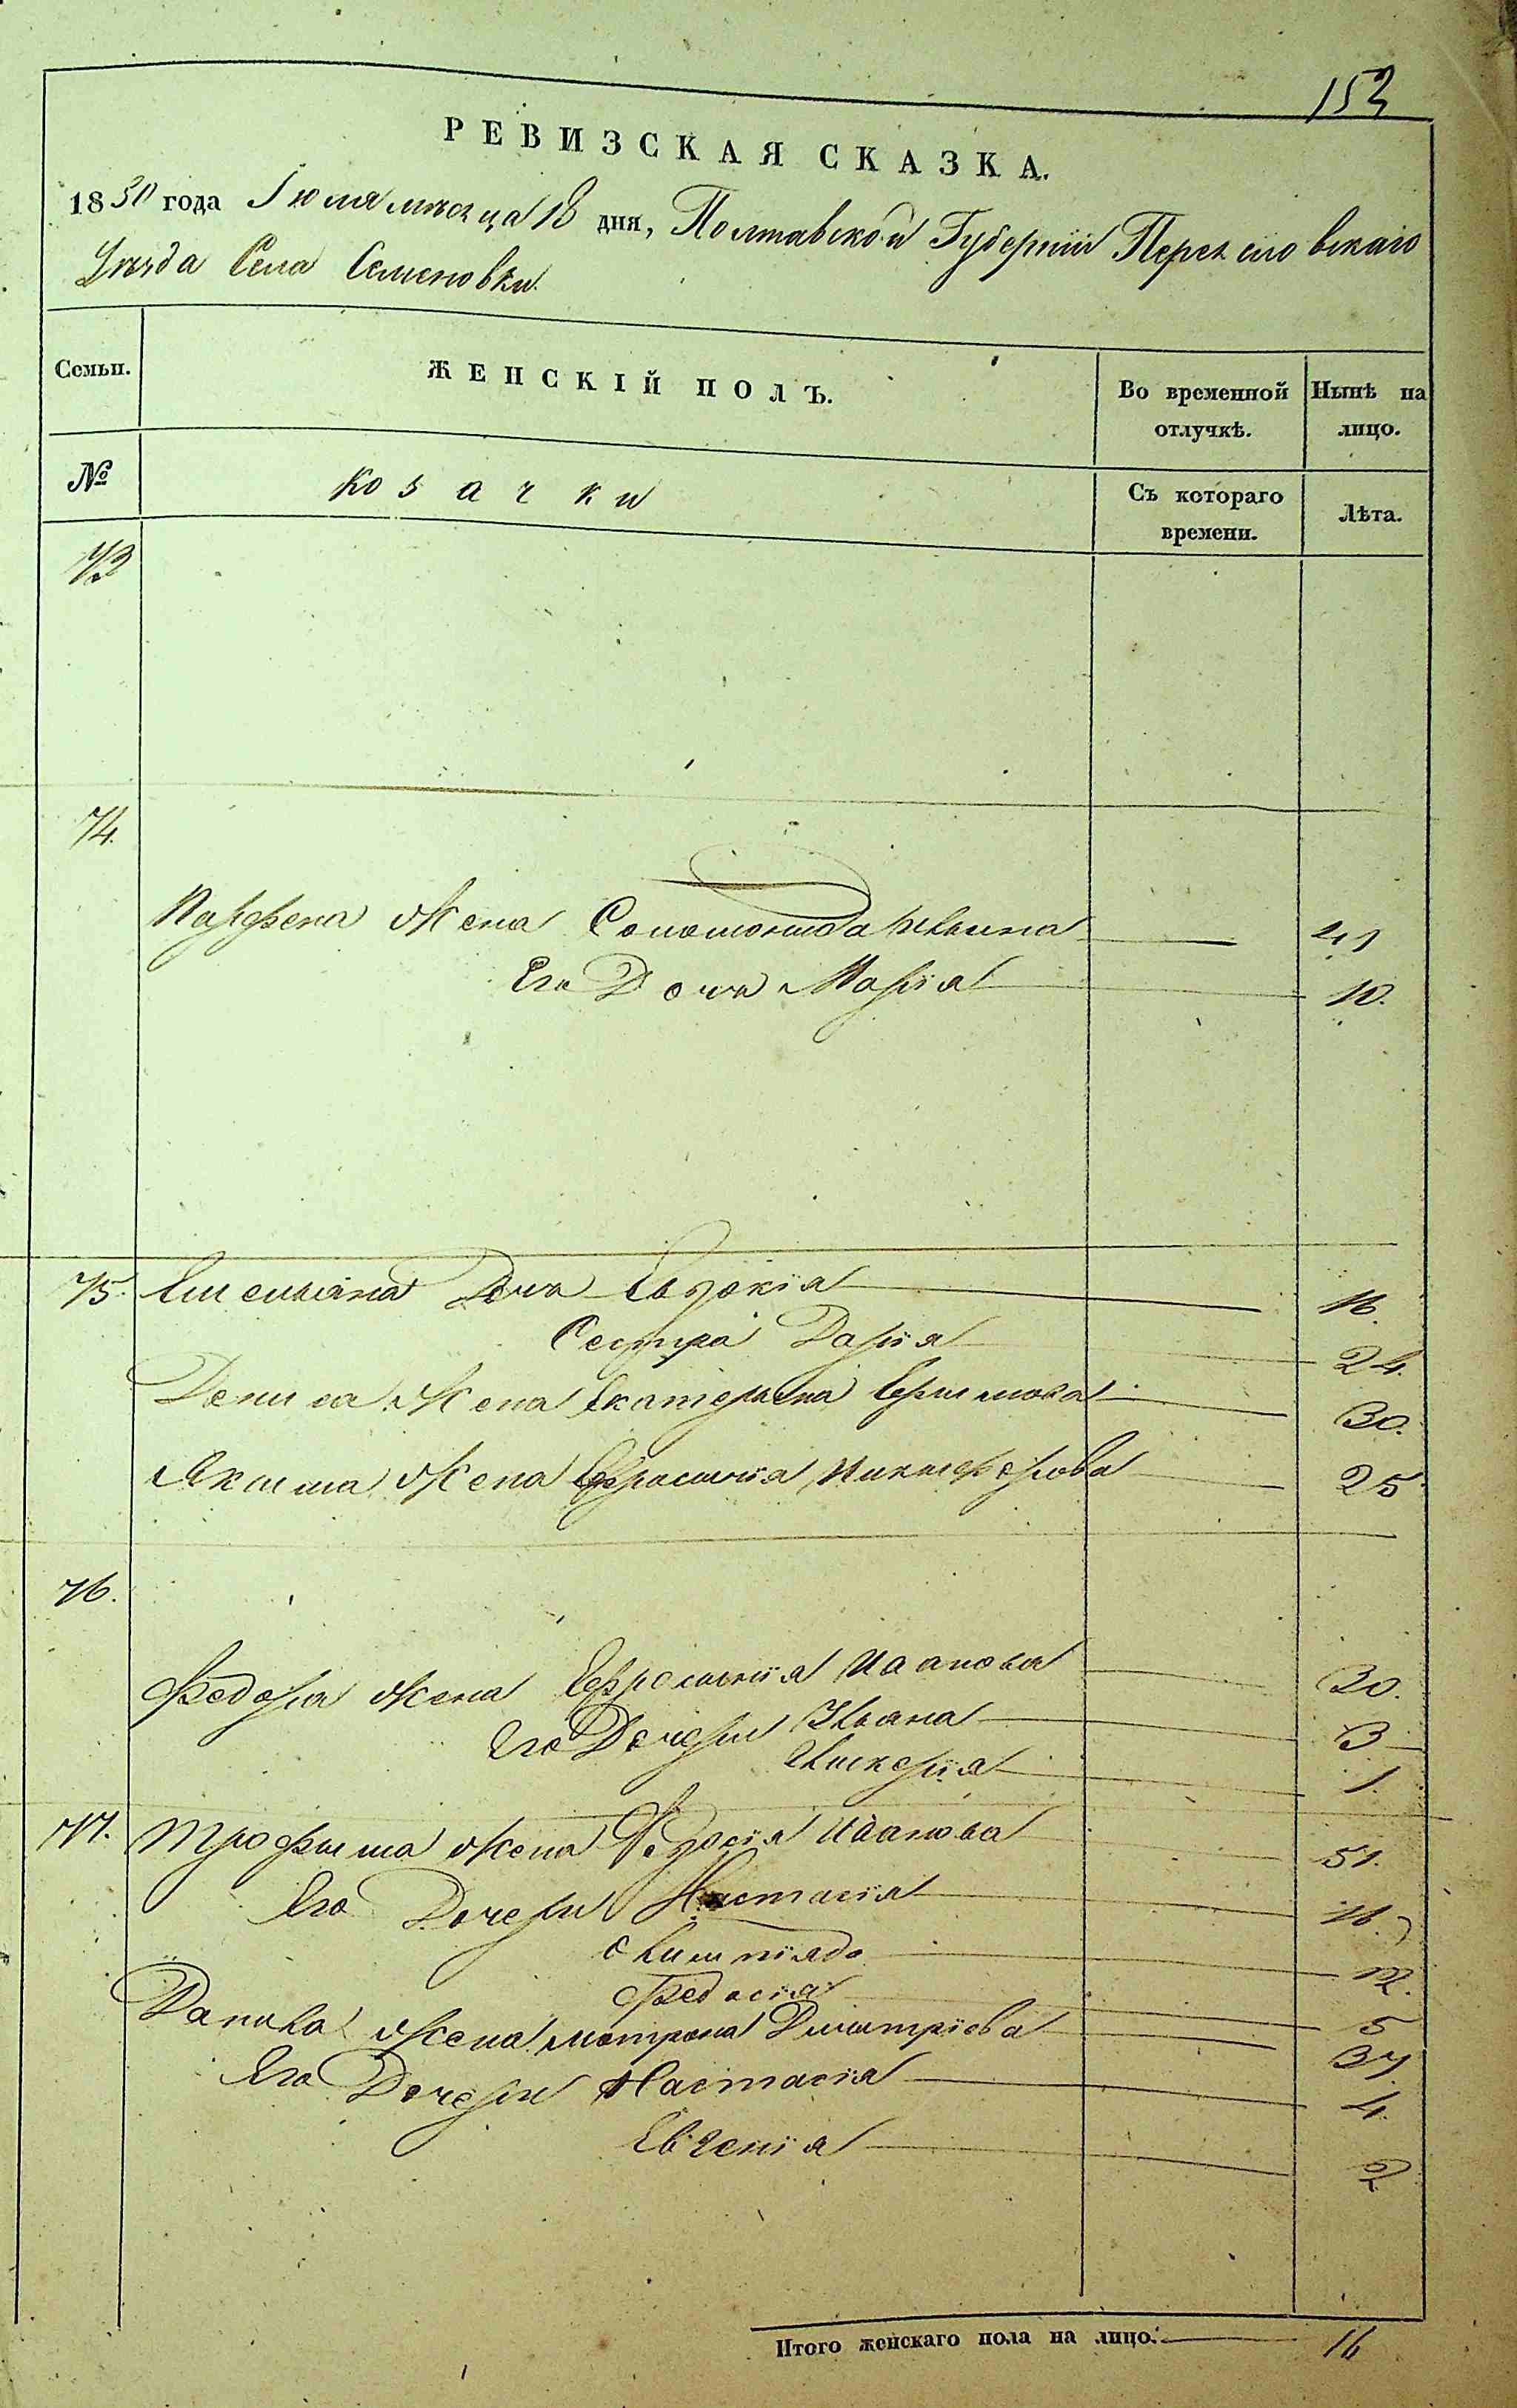 153
РЕВИЗСКАЯ СКАЗКА.
1850 года Іюля месяца 18 дня, Полтавской Губерніи Переяславскаго
Уезда Села Семеновки
Семьи.
ЖЕНСКІЙ ПОЛЪ.
Во временной отлучкѣ.
Нынѣ на лицо.
№
Козачки
Съ котораго времени.
Лѣта.
73
74.
Парфена жена Соломонида 41
Его Дочь Марія 10.
75. Емельяна Дочь Евдокія 16.
Сестра Дарія 24.
Дениса жена Екатерина Ефимова 30.
Якима жена Ефросинія Никифорова 25
76.
Федора жена Ефросинія Иванова 30.
Его Дочери Ульяна 3
Гликерія 1.
77. Трофима жена Феодосія Иванова 51.
Его Дочери Настасія 16.
Олимпіяда 12.
Федосія 5
Данила жена Мотрона Дмитріева 37.
Его Дочери Настасія 4.
Евгенія 2
Итого женскаго пола на лицо. 16